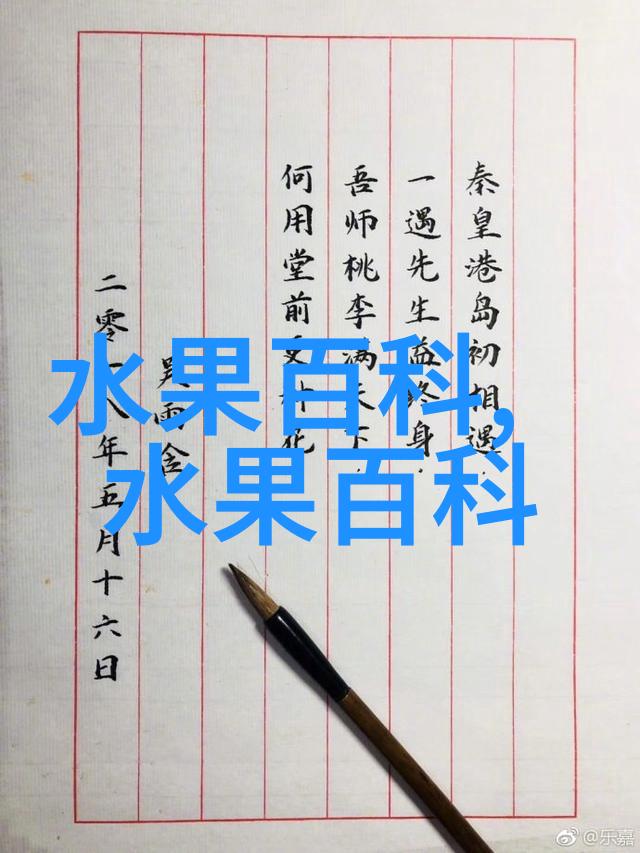 秦皇港岛初相遇，
一遇先生益终身，
吾师桃李满天下，
何用堂前更种花
吴雨含
二零一八年五月十六日
水果百科,
水果百科
@乐嘉